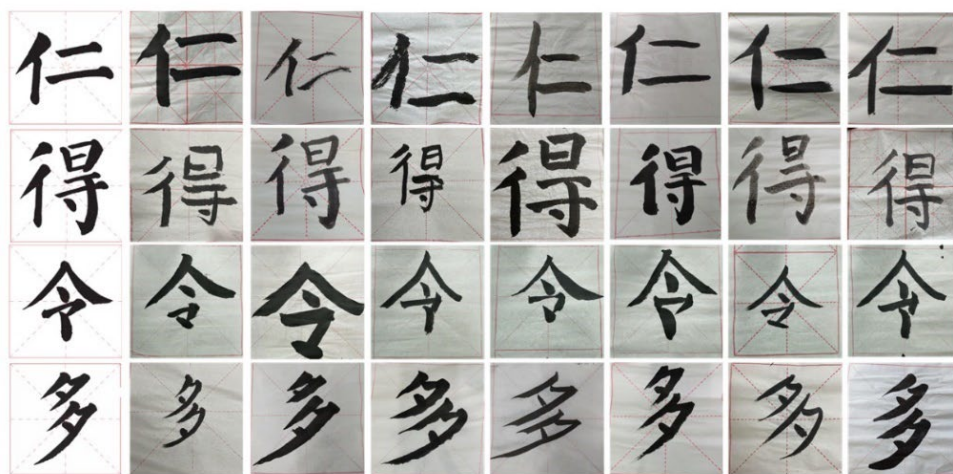 仁 仁 仁 仁 仁 仁 仁 仁
得 得 得 得 得 得 得 得
令 令 令 令 令 令 令 令
多 多 多 多 多 多 多 多